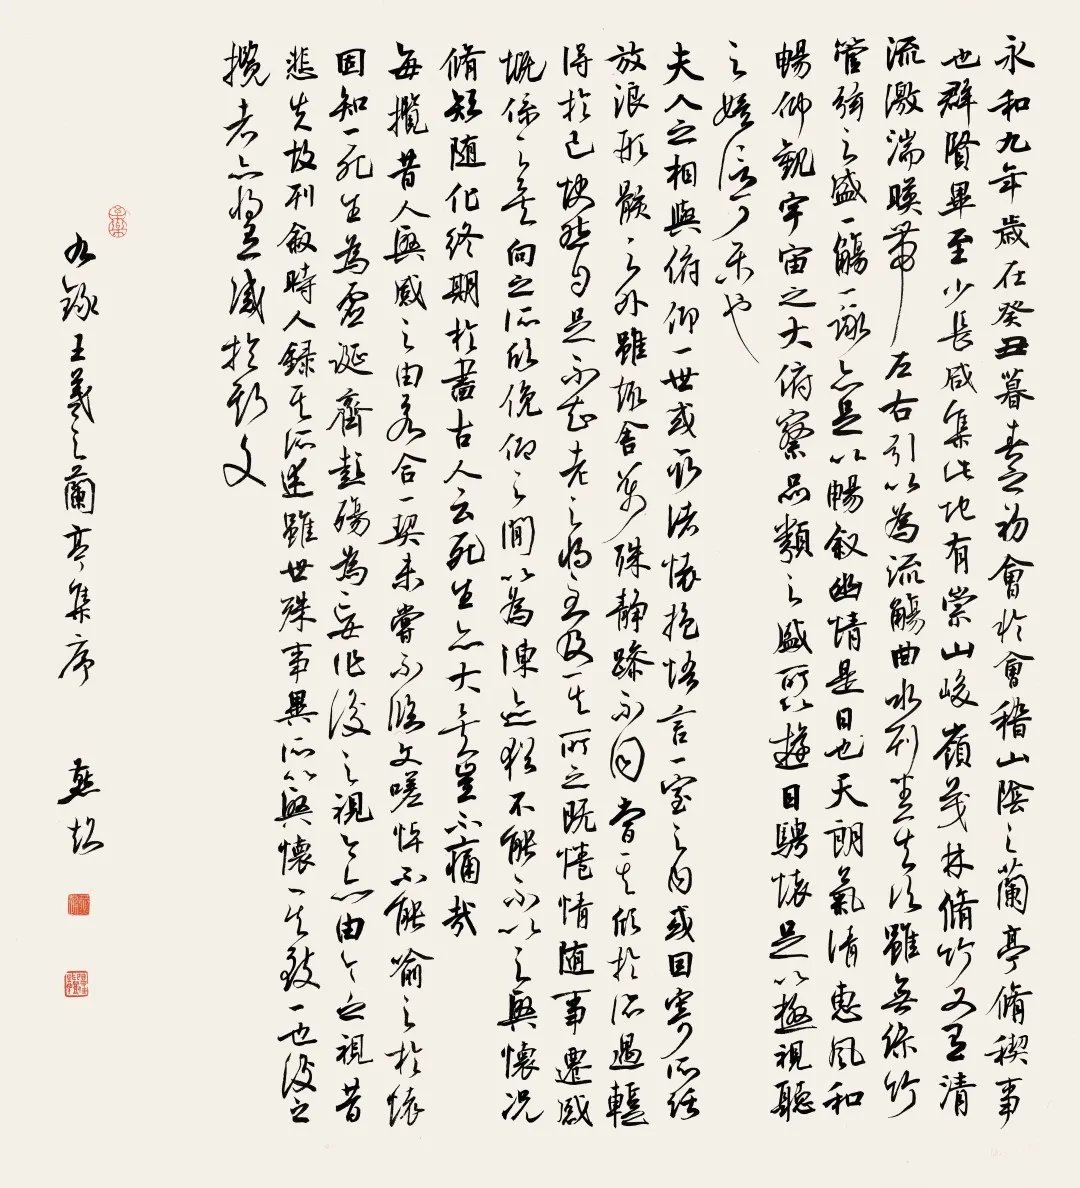 永和九年歲在癸丑暮春之初會於會稽山陰之蘭亭脩稧事
也群賢畢至少長咸集此地有崇山峻嶺茂林脩竹又有清
流激湍暎帶左右引以為流觴曲水列坐其次雖無絲竹
管弦之盛一觴一詠亦足以暢叙幽情是日也天朗氣清惠風和
暢仰觀宇宙之大俯察品類之盛所以遊目騁懷足以極視聽
之娛信可樂也
夫人之相與俯仰一世或取諸懷抱悟言一室之內或因寄所託
放浪形骸之外雖趣舍萬殊静躁不同當其欣於所遇輒
得於己快然自足不知老之將至及其所之既惓情随事遷感
慨係之矣向之所欣俛仰之間以為陳迹猶不能不以之興懷况
脩短随化終期於盡古人云死生亦大矣豈不痛哉
每攬昔人興感之由若合一契未嘗不臨文嗟悼不能喻之於懷
固知一死生為虛誕齊彭殤為妄作後之視今亦由今之視昔
悲夫故列叙時人錄其所述雖世殊事異所以興懷其致一也後之
攬者亦將有感於斯文
右錄王羲之蘭亭集序